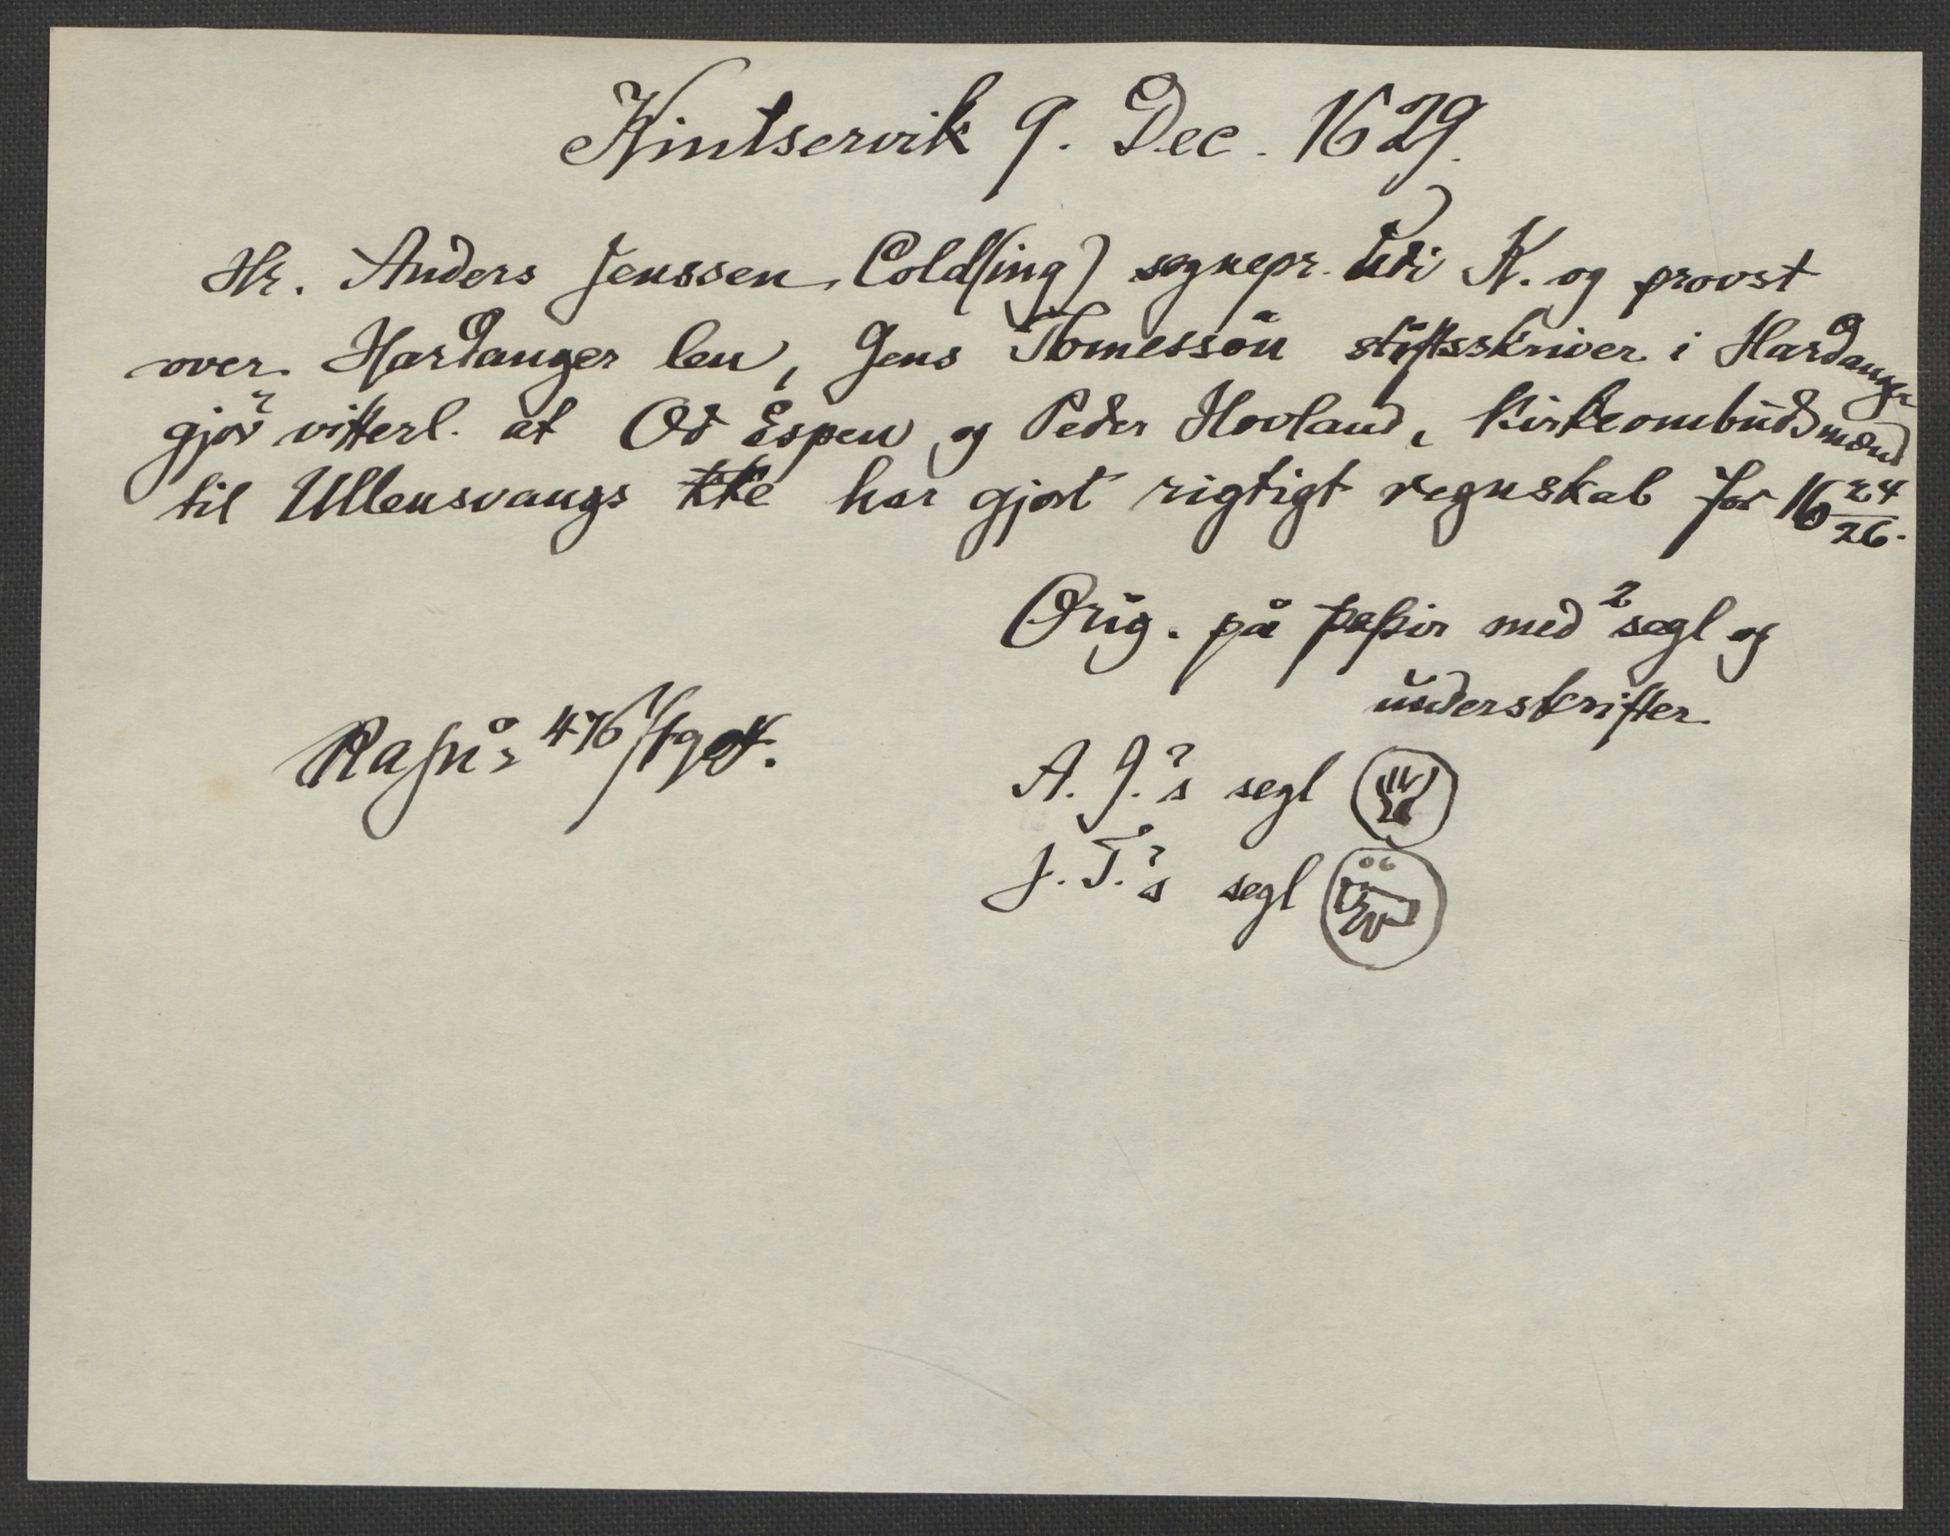 Kintservik 9. Dec. 1629.
Hr. Anders Jenssen Cold(ing) sognepr. udi K. og provst
over Hardanger len, Jens Tomessön stiftsskriver i Hardanger
gjör vitterl. at Od Espen og Peder Hovland, Kirkeombudsmænd
til Ullensvangs kke har gjort rigtigt regnskab for 16 24/26.
Orig. på papir med 2 segl og
underskrifter.
476/1904.
A. J.'s segl
J. T.'s segl